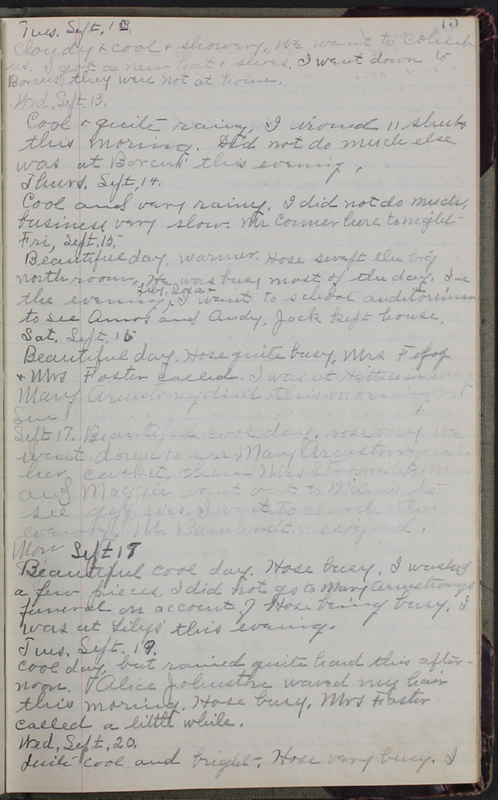 75
Tues. Sept. 12.
Cloudy & cool & showery. We went to Columb
us. I got a new hat & shoes. I went down to
they were not at home.
Wed, Sept. 13.
Cool & quite rainy. I ironed 11 shirts
this morning. Did not do much else
was at this evening.
Thurs. Sept, 14.
Cool and very rainy. I did not do much,
business very slow. Mr Conner here tonight
Fri, Sept. 15.
Beautiful day, warmer. Hose swept the big
north room. He was busy most of the day. In
the evening, I went to school auditorium
to see Amos and Andy, Jack kept house.
Sat, Sept. 16
Beautiful day. Hose quite busy, Mrs
& Mrs Foster called. I was at
Mary Armstrong died this morning at
Sun
Sept 17. Beautiful cool day. Hose busy. We
went down to see Mary Armstrong in
her casket, then Mrs
and Maggie went out to to
see I went to church this
evening. Mr
Mon Sept 18
Beautiful cool day. Hose busy, I washed
a few pieces. I did not go to Mary Armstrongs
funeral on account of Hose being busy. I
was at Lilys this evening.
Tues. Sept. 19.
cool day, but rained quite hard this after-
noon. Alice Johnston waved my hair
this morning. Hose busy. Mrs Foster
called a little while.
Wed, Sept. 20.
Quite cool and bright. Hose very busy. I